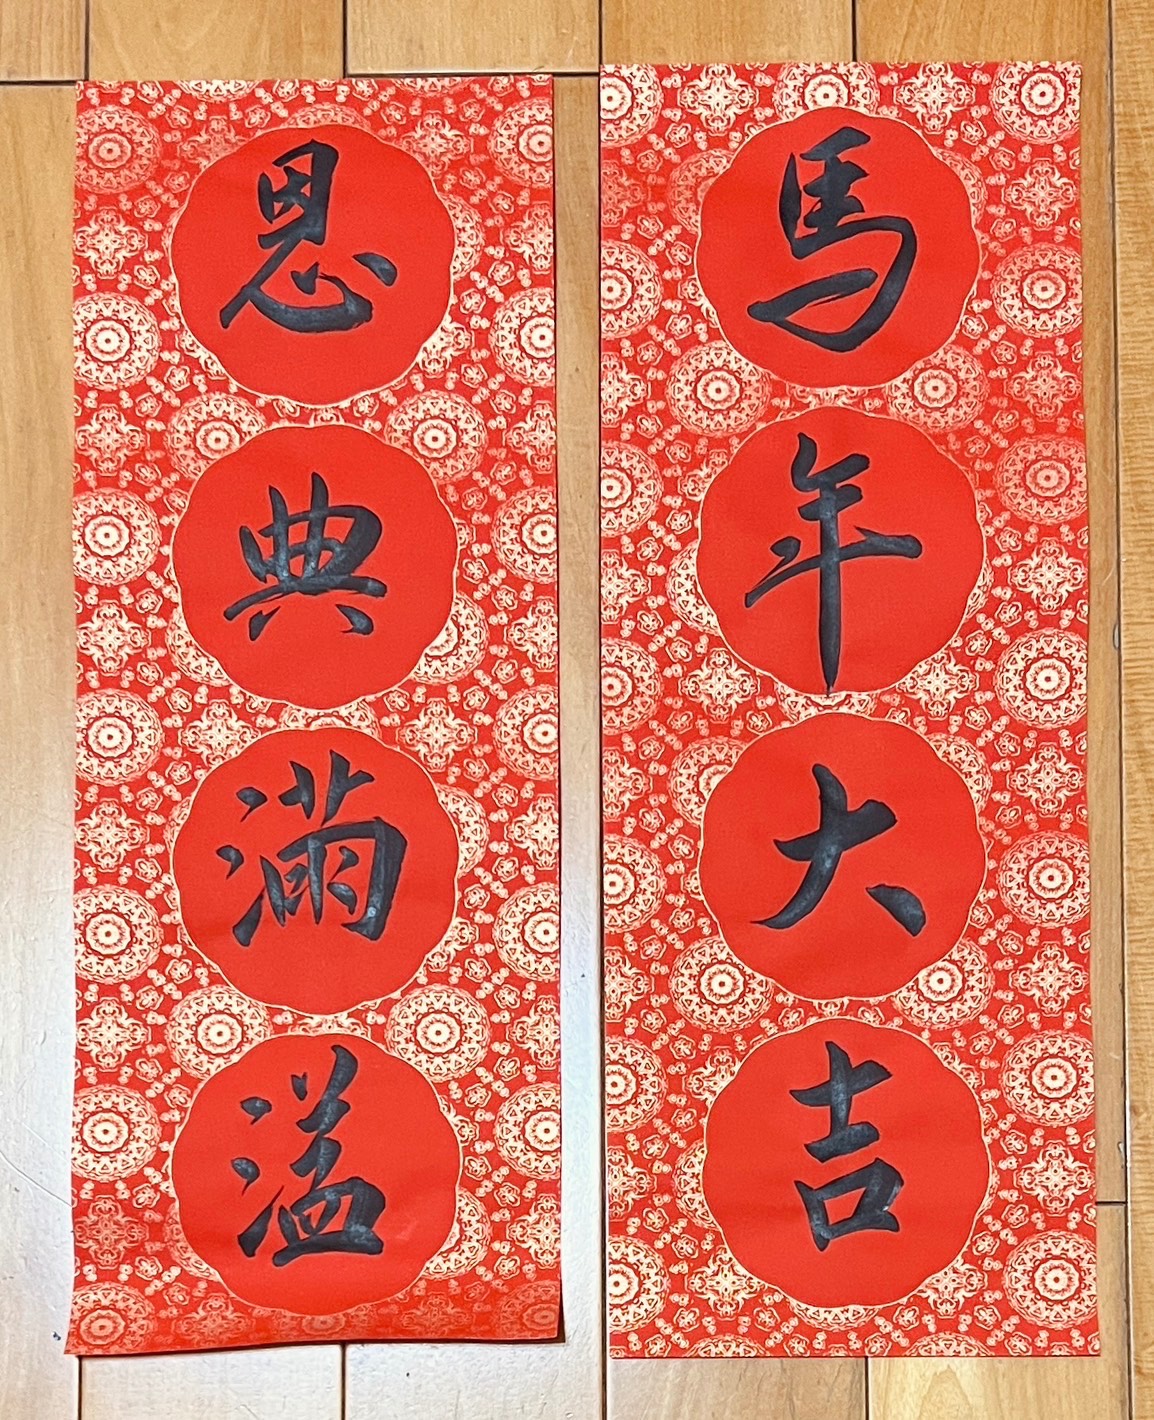 馬年大吉
恩典滿溢